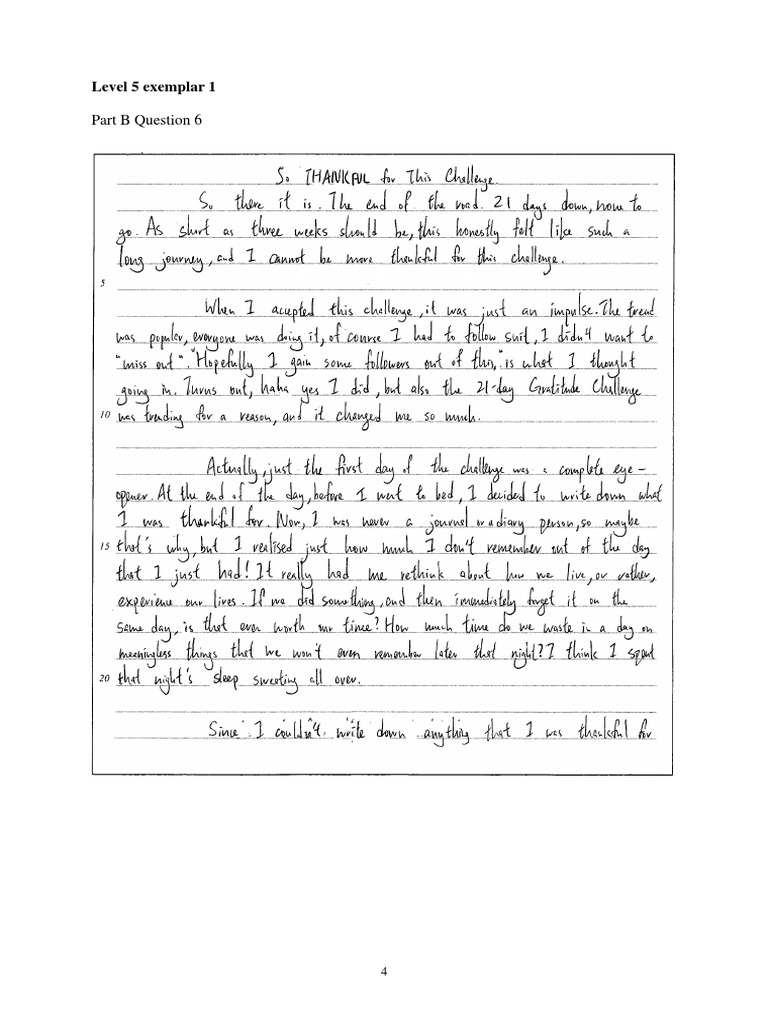 Level 5 exemplar 1
Part B Question 6
So THANKFUL for This Challenge.
So there it is. The end of the road. 21 days down, none to
go. As short as three weeks should be, this honestly felt like such a
long journey, and I cannot be more thankful for this challenge.
5
When I accepted this challenge, it was just an impulse. The trend
was popular, everyone was doing it, of course I had to follow suit, I didn't want to
"miss out". "Hopefully I gain some followers out of this," is what I thought
going in. Turns out, haha yes I did, but also the 21-day Gratitude Challenge
10 was trending for a reason, and it changed me so much.
Actually, just the first day of the challenge was a complete eye-
opener. At the end of the day, before I went to bed, I decided to write down what
I was thankful for. Now, I was never a journal or a diary person, so maybe
15 that's why, but I realised just how much I don't remember out of the day
that I just had! It really had me rethink about how we live, or rather,
experience our lives. If we did something, and then immediately forget it on the
same day, is that even worth our time? How much time do we waste in a day on
meaningless things that we won't even remember later that night? I think I spent
20 that night's sleep sweating all over.
Since I couldn't write down anything that I was thankful for
4